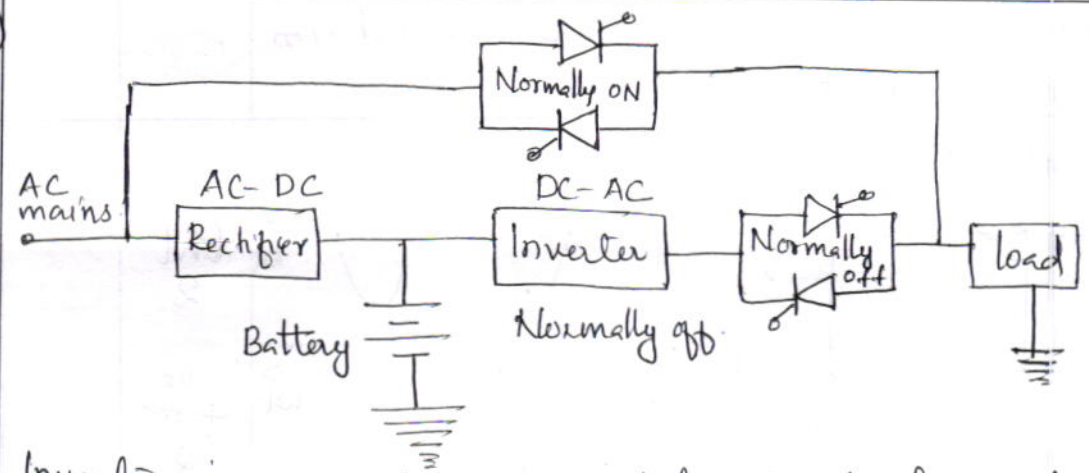 Normally ON
AC mains
AC-DC
Rectifier
DC-AC
Inverter
Normally off
load
Battery
Normally off.